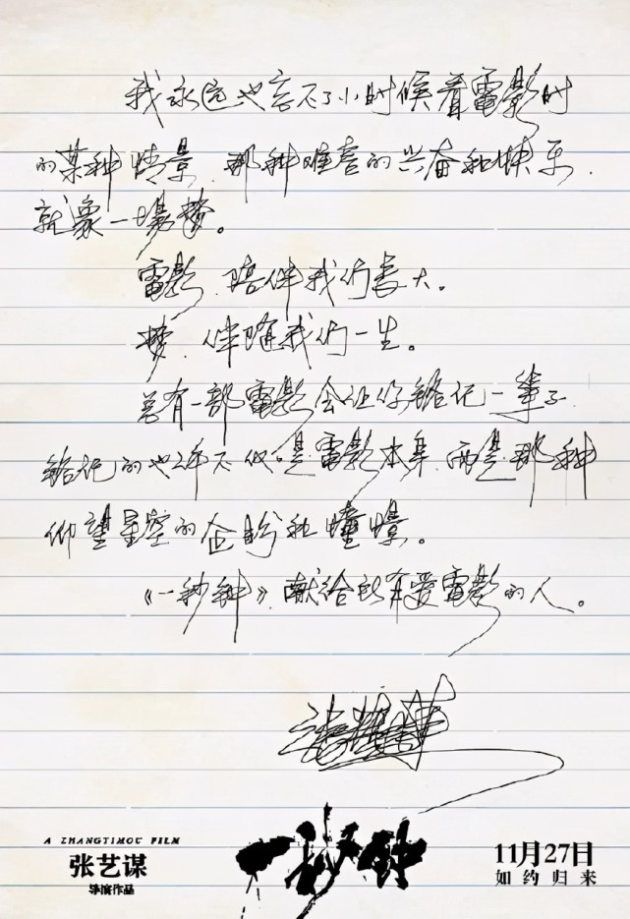 我永远也忘不了小时候看電影时
的某种情景,那种难言的兴奋和快乐,
就象一場梦。
電影,陪伴我们长大。
梦,伴随我们一生。
总有一部電影会让你铭记一辈子,
铭记的也许不仅是電影本身,而是那种
仰望星空的企盼和憧憬。
《一秒钟》,献给所有爱電影的人。
张艺谋
A ZHANGYIMOU FILM
张艺谋
导演作品
一秒钟
11月27日
如约归来